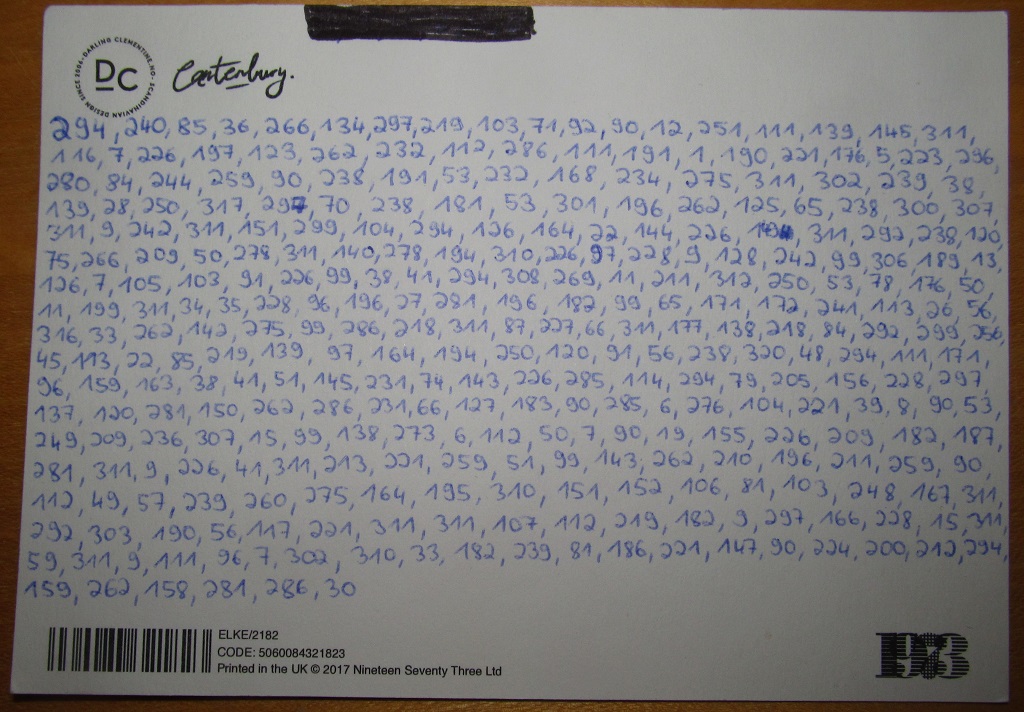 DARLING CLEMENTINE.NO · SCANDINAVIAN DESIGN SINCE 2006 ·
DC
Canterbury.
294, 240, 85, 36, 266, 134, 297, 219, 103, 71, 92, 90, 12, 251, 111, 139, 145, 311,
116, 7, 226, 197, 123, 262, 232, 112, 286, 111, 191, 1, 190, 221, 176, 5, 223, 296,
280, 84, 244, 259, 90, 238, 191, 53, 232, 168, 234, 275, 311, 302, 239, 38,
139, 28, 250, 317, 297, 70, 238, 181, 53, 301, 196, 262, 125, 65, 238, 300, 307,
311, 9, 242, 311, 151, 299, 104, 294, 126, 164, 22, 144, 226, 311, 292, 238, 120
75, 266, 209, 50, 278, 311, 140, 278, 194, 310, 226, 97, 228, 9, 128, 242, 99, 306, 189, 13,
126, 7, 105, 103, 91, 226, 99, 38, 41, 294, 308, 269, 11, 211, 312, 250, 53, 78, 176, 50,
11, 199, 311, 34, 35, 228, 96, 196, 27, 281, 196, 182, 99, 65, 171, 172, 241, 113, 26, 56,
316, 33, 262, 142, 275, 99, 286, 218, 311, 87, 227, 66, 311, 177, 138, 218, 84, 292, 299, 256,
45, 113, 22, 85, 219, 139, 97, 164, 194, 250, 120, 91, 56, 238, 320, 48, 294, 111, 171,
96, 159, 163, 38, 41, 51, 145, 231, 74, 143, 226, 285, 114, 294, 79, 205, 156, 228, 297
137, 120, 281, 150, 262, 286, 231, 66, 127, 183, 90, 285, 6, 276, 104, 221, 39, 8, 90, 53,
249, 209, 236, 307, 15, 99, 138, 273, 6, 112, 50, 7, 90, 19, 155, 226, 209, 182, 187,
281, 311, 9, 226, 41, 311, 213, 221, 259, 51, 99, 143, 262, 210, 196, 211, 259, 90,
112, 49, 57, 239, 260, 275, 164, 195, 310, 151, 152, 106, 81, 103, 248, 167, 311,
292, 303, 190, 56, 117, 221, 311, 311, 107, 112, 219, 182, 9, 297, 166, 228, 15, 311,
59, 311, 9, 111, 96, 7, 302, 310, 33, 182, 239, 81, 186, 221, 147, 90, 224, 200, 212, 294,
159, 262, 158, 281, 286, 30
ELKE/2182
CODE: 5060084321823
Printed in the UK © 2017 Nineteen Seventy Three Ltd
1973